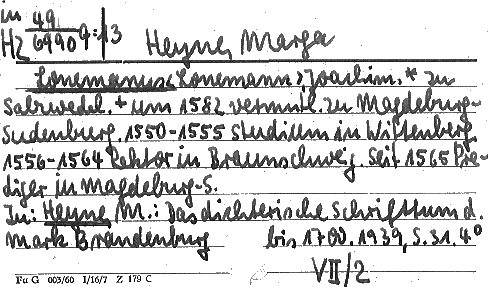 in 49
HZ 6990 9:13
Heyne, Marga
Lonemanus <Lonemann>, Joachim. * zu
Salzwedel. + um 1582 vermutl. zu Magdeburg-
Sudenburg. 1550-1555 Studium in Wittenberg
1556-1564 Rektor in Braunschweig. Seit 1565 Pre-
diger in Magdeburg-S.
In: Heyne, M.: Das dichterische Schrifttum d.
Mark Brandenburg bis 1700. 1939, S. 31. 4°
VII/2
Fu G 003/60 I/16/7 Z 179 C